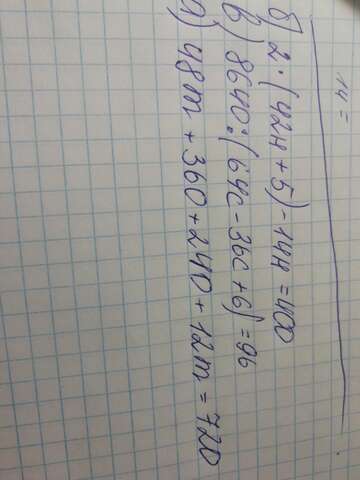 14 =
б) 2 · (42y + 5) - 14y = 400
в) 8640 : (64c - 36c + 6) = 96
а) 48m + 360 + 240 + 12m = 720